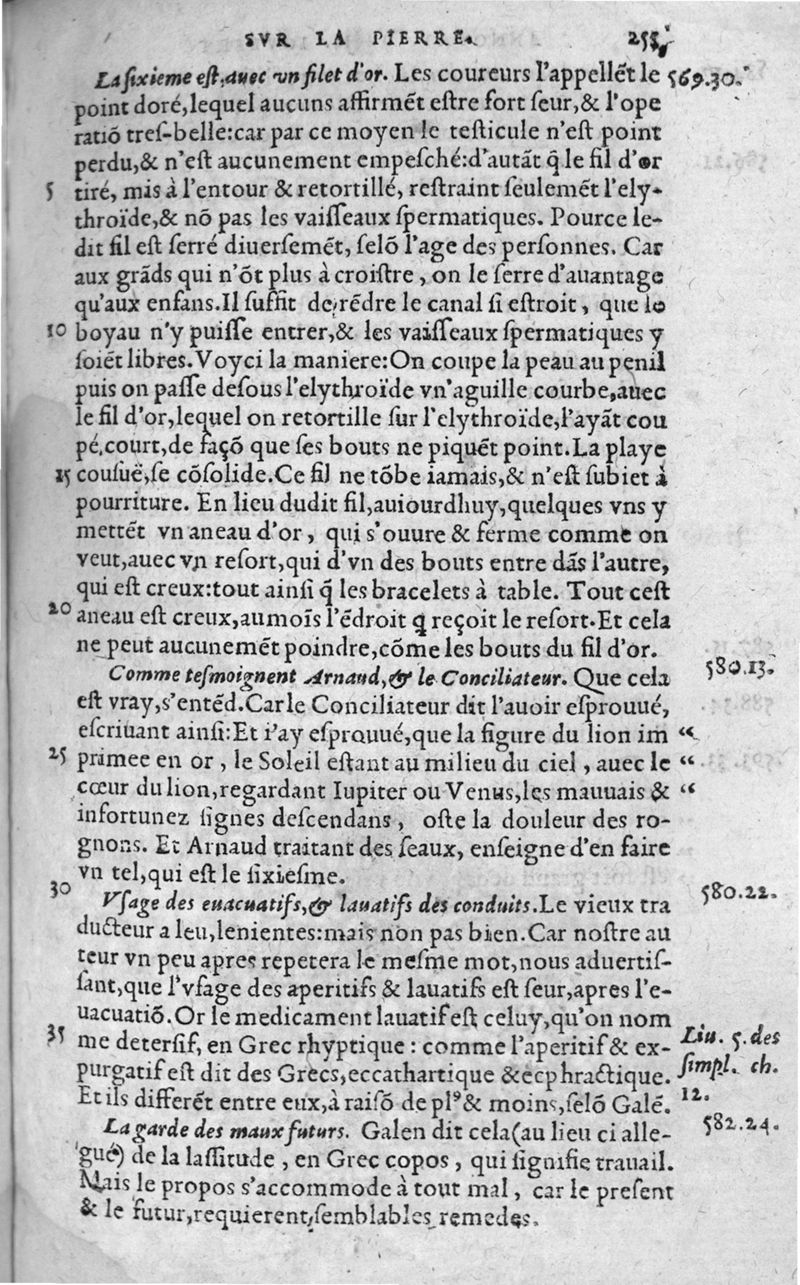 SVR LA PIERRE. 255
La ſixieme eſt, auec vn filet d'or. Les coureurs l'appellẽt le 569.30.
point doré, lequel aucuns affirmẽt eſtre fort ſeur, & l'ope
ratiõ treſ-belle: car par ce moyen le teſticule n'eſt point
perdu, & n'eſt aucunement empeſché: d'autãt q̃ le fil d'or
5 tiré, mis à l'entour & retortillé, reſtraint ſeulemẽt l'ely-
throïde, & nõ pas les vaiſſeaux ſpermatiques. Pource le-
dit fil eſt ſerré diuerſemẽt, ſelõ l'age des perſonnes. Car
aux grãds qui n'õt plus à croiſtre, on le ſerre d'auantage
qu'aux enfans. Il ſuffit de rẽdre le canal ſi eſtroit, que le
10 boyau n'y puiſſe entrer, & les vaiſſeaux ſpermatiques y
ſoiẽt libres. Voyci la maniere: On coupe la peau au penil
puis on paſſe deſous l'elythroïde vn'aguille courbe, auec
le fil d'or, lequel on retortille ſur l'elythroïde, l'ayãt cou
pé, court, de façõ que ſes bouts ne piquẽt point. La playe
15 couſuë, ſe cõſolide. Ce fil ne tõbe iamais, & n'eſt ſubiet à
pourriture. En lieu dudit fil, auiourdhuy, quelques vns y
mettẽt vn aneau d'or, qui s'ouure & ferme comme on
veut, auec vn reſort, qui d'vn des bouts entre dãs l'autre,
qui eſt creux: tout ainſi q̃ les bracelets à table. Tout ceſt
20 aneau eſt creux, aumoīs l'ẽdroit q reçoit le reſort. Et cela
ne peut aucunemẽt poindre, cõme les bouts du fil d'or.
Comme teſmoignent Arnaud, & le Conciliateur. Que cela 580.13.
eſt vray, s'entẽd. Car le Conciliateur dit l'auoir eſprouué,
eſcriuant ainſi: Et i'ay eſprouué, que la figure du lion im “
25 primee en or, le Soleil eſtant au milieu du ciel, auec le “
cœur du lion, regardant Iupiter ou Venus, les mauuais & “
infortunez ſignes deſcendans, oſte la douleur des ro-
gnons. Et Arnaud traitant des ſeaux, enſeigne d'en faire
vn tel, qui eſt le ſixieſme.
30 Vſage des euacuatifs, & lauatifs des conduits. Le vieux tra 580.22.
ducteur a leu, lenientes: mais non pas bien. Car noſtre au
teur vn peu apres repetera le meſme mot, nous aduertiſ-
ſant, que l'vſage des aperitifs & lauatifs eſt ſeur, apres l'e-
uacuatiõ. Or le medicament lauatif eſt celuy, qu'on nom
35 me deterſif, en Grec rhyptique: comme l'aperitif & ex- Liu. 5. des
purgatif eſt dit des Grecs, eccathartique & ecphractique. ſimpl. ch.
Et ils differẽt entre eux, à raiſõ de plꝰ & moins, ſelõ Galẽ. 12.
La garde des maux futurs. Galen dit cela (au lieu ci alle- 582.24.
gué) de la laſſitude, en Grec copos, qui ſignifie trauail.
Mais le propos s'accommode à tout mal, car le preſent
& le futur, requierent ſemblables remedes.